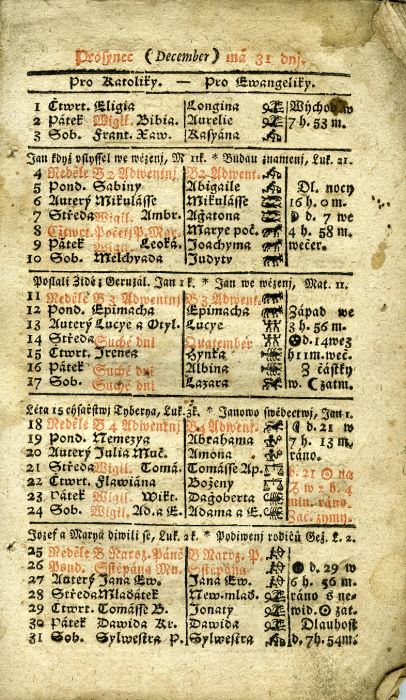 Prosynec (December) má 31 dnj.
Pro Katolíky. — Pro Ewangelíky.
1 Čtwrt. Eligia Longina Weychod w
2 Pátek Wigil. Bibia. Aurelie 7 h. 53 m.
3 Sob. Frant. Xaw. Kasyána
Jan když vslyssel we wězenj, M 11k. * Budau znamenj, Luk. 21.
4 Neděle B 2 Adwentnj B 2 Adwent.
5 Pond. Sabiny Abigaile Dl. nocy
6 Auterý Mikulásse Mikulásse 16 h. 0 m.
7 Středa Wigil. Ambr. Agatona d. 7 we
8 Čžtwrt. Početj P. Mar. Marye poč. 4 h. 58 m.
9 Pátek Leoka. Joachyma wečer.
10 Sob. Melchyada Judyty
Poslali Židé z Geruzal. Jan 1 k. * Jan we wězenj, Mat. 11.
11 Neděle B 3 Adwentnj B 3 Adwent.
12 Pond. Epimacha Epimacha Západ we
13 Auterý Lucye a Otyl. Lucye 3 h. 56 m.
14 Středa Suché dni Quatember d. 14 wez
15 Čtwrt. Irenea Hynka h 11 m. weč.
16 Pátek Suché dni Albina Z částky
17 Sob. Suché dni Lazara w. zatm.
Léta 15 cysařstwj Tyberya, Luk. 3k. * Janowo swědectwj, Jan 1.
18 Neděle B 4 Adwentnj B 4 Adwent. d. 21 w
19 Pond. Nemezya Abrahama 7 h. 13 m.
20 Auterý Julia Muč. Amona ráno.
21 Středa Wigil. Tomá. Tomásse Ap. d. 21 na
22 Čtwrt. Flawiána Boženy w 2 h. 4
23 Pátek Wigil. Wikt. Dagoberta min. ráno.
24 Sob. Wigil. Ad. a E. Adama a E. Zač. zymy.
Jozef a Marya diwili se, Luk. 2k. * Podiwenj rodičů Gež. L. 2.
25 Neděle B Naroz. Páně B Naroz. P.
26 Pond. Sstěpána Mu. Sstěpána d. 29 w
27 Auterý Jana Ew. Jana Ew. 6 h. 36 m.
28 Středa Mladátek New. mlad. ráno s ne-
29 Čtwrt. Tomásse B. Jonaty wid. zat.
30 Pátek Dawida Kr. Dawida Dlauhost
31 Sob. Sylwestra P. Sylwestra d. 7h. 54m.